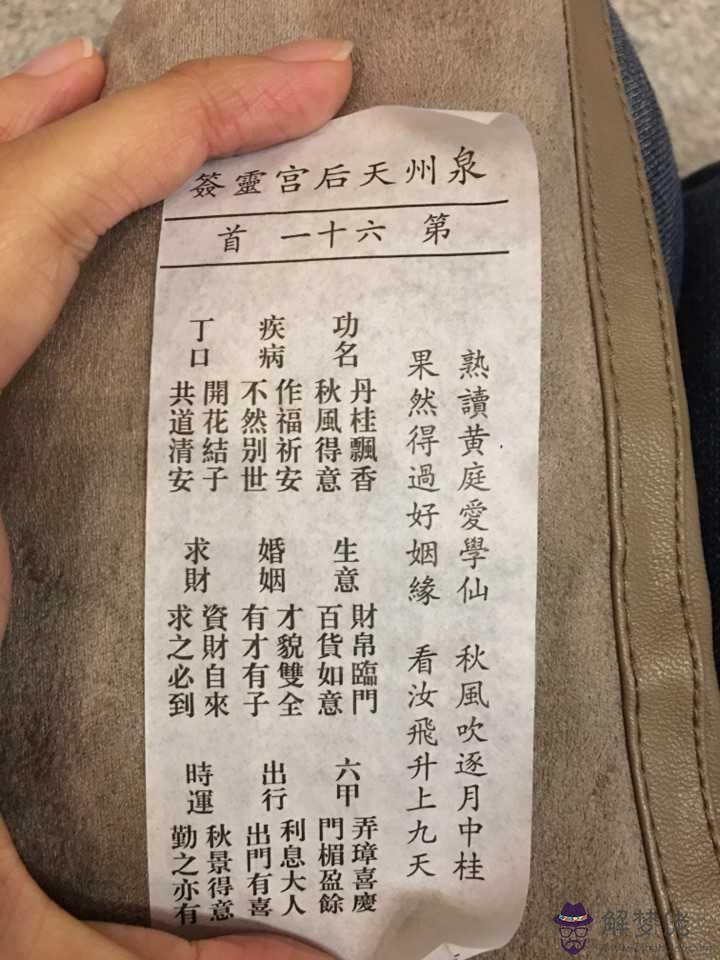 泉州天后宫靈簽
第六十一首
熟讀黄庭愛學仙 秋風吹逐月中桂
果然得過好姻緣 看汝飛升上九天
功名
丹桂飄香
秋風得意
生意
財帛臨門
百貨如意
六甲
弄璋喜慶
門楣盈餘
疾病
作福祈安
不然别世
婚姻
才貌雙全
有才有子
出行
利息大人
出門有喜
丁口
開花結子
共道清安
求財
資財自來
求之必到
時運
秋景得意
勤之亦有
解梦佬